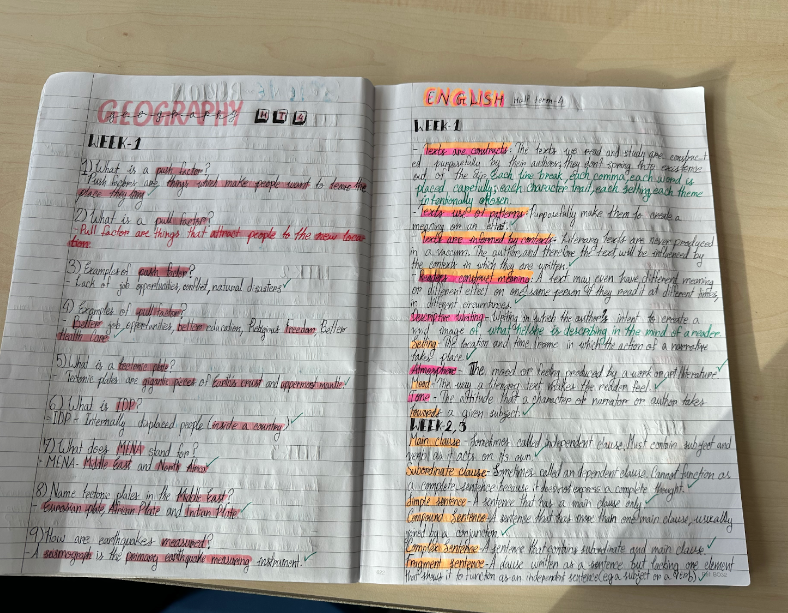 GEOGRAPHY
WEEK-1
1) What is a push factor?
- Push factors are things that make people want to leave the
place they
2) What is a pull factor?
- Pull factor are things that attract people to the new loca
tion
3) Examples of push factor?
- Lack of job opportunities, conflict, natural disasters
4) Examples of pull factor?
- Better job opportunities, better education, Religious freedom, Better
Health care
5) What is a tectonic plate?
- Tectonic plates are gigantic pieces of Earth's crust and uppermost mantle.
6) What is IDP?
- IDP - Internally displaced people (inside a country)
7) What does MENA stand for?
- MENA - Middle East and North Africa
8) Name tectonic plates in the Middle East?
- Eurasian plate, African Plate and Indian Plate
9) How are earthquakes measured?
- A seismograph is the primary earthquake measuring instrument.
ENGLISH Half term-4
WEEK-1
- Texts are constructs: The texts we read and study are construct
ed purposefully by their authors, they don't spring into existence
out of the air. Each line break, each comma, each word is
placed carefully; each character trait, each setting, each theme
intentionally chosen.
- Texts use of patterns: Purposefully make them to create a
meaning or an effect.
- Texts are informed by contexts: Literary texts are never produced
in a vacuum. The authors and therefore the text will be influenced by
the contexts in which they are written.
- Readers construct meaning: A text may even have different meaning
or different effect on one same person if they read it at different times,
in different circumstances.
Descriptive Writing - Writing in which the author's intent to create a
vivid image of what he/she is describing in the mind of a reader
Setting: The location and time frame in which the action of a narrative
takes place
Atmosphere - The mood or feeling produced by a work or art literature
Mood - The way a literary text makes the reader feel
Tone - The attitude that a character or narrator or author takes
towards a given subject.
WEEK-2,3
Main clause - Sometimes called independent clause. Must contain subject and
verb as it acts on its own.
Subordinate clause - Sometimes called an dependent clause. Cannot function as
a complete sentence because it does not express a complete thought.
Simple sentence - A sentence that has a main clause only
Compound Sentence - A sentence that has more than one main clause, usually
joined by a conjunction
Complex sentence - A sentence that contains subordinate and main clause
Fragment sentence - A clause written as a sentence but lacking one element
that allows it to function as an independent sentence (eg a subject or a verb)